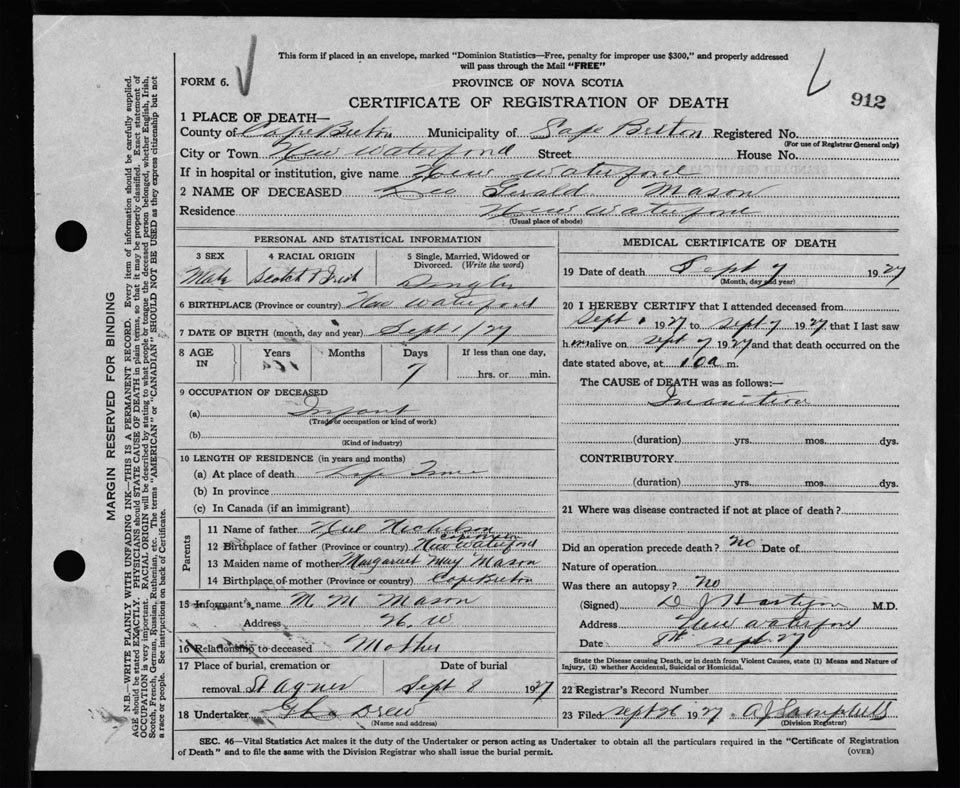 This form if placed in an envelope, marked "Dominion Statistics—Free, penalty for improper use $300," and properly addressed
will pass through the Mail "FREE"
FORM 6.
PROVINCE OF NOVA SCOTIA
CERTIFICATE OF REGISTRATION OF DEATH
912
1 PLACE OF DEATH—
County of Cape Breton Municipality of Cape Breton Registered No.
(For use of Registrar General only)
City or Town New Waterford Street House No.
If in hospital or institution, give name New Waterford
2 NAME OF DECEASED Leo Gerald Mason
Residence New Waterford
(Usual place of abode)
PERSONAL AND STATISTICAL INFORMATION
3 SEX Male
4 RACIAL ORIGIN Scotch & Irish
5 Single, Married, Widowed or Divorced. (Write the word) Single
6 BIRTHPLACE (Province or country) New Waterford
7 DATE OF BIRTH (month, day and year) Sept 1/27
8 AGE IN Years Months Days 7 If less than one day, hrs. or min.
9 OCCUPATION OF DECEASED
(a) Infant
(Trade or occupation or kind of work)
(b)
(Kind of industry)
10 LENGTH OF RESIDENCE (in years and months)
(a) At place of death Life Time
(b) In province
(c) In Canada (if an immigrant)
Parents
11 Name of father Neil Nicholson
12 Birthplace of father (Province or country) New Waterford
13 Maiden name of mother Margaret May Mason
14 Birthplace of mother (Province or country) Cape Breton
15 Informant's name M M Mason
Address N. W
16 Relationship to deceased Mother
17 Place of burial, cremation or removal St Agnes
Date of burial Sept 8 1927
18 Undertaker Drew
(Name and address)
MEDICAL CERTIFICATE OF DEATH
19 Date of death Sept 7 1927
(Month, day and year)
20 I HEREBY CERTIFY that I attended deceased from
Sept 1 1927 to Sept 7 1927 that I last saw
h im alive on Sept 7 1927 and that death occurred on the
date stated above, at 10 a m.
The CAUSE OF DEATH was as follows:—
Inanition
(duration) yrs. mos. dys.
CONTRIBUTORY
(duration) yrs. mos. dys.
21 Where was disease contracted if not at place of death?
Did an operation precede death? No Date of
Nature of operation
Was there an autopsy? No
(Signed) D J Hartigan M.D.
Address New Waterford
Date 8th Sept 27
State the Disease causing Death, or in death from Violent Causes, state (1) Means and Nature of
Injury, (2) whether Accidental, Suicidal or Homicidal.
22 Registrar's Record Number
23 Filed Sept 26 1927 A J Campbell
(Division Registrar)
SEC. 46—Vital Statistics Act makes it the duty of the Undertaker or person acting as Undertaker to obtain all the particulars required in the "Certificate of Registration
of Death" and to file the same with the Division Registrar who shall issue the burial permit.
(OVER)
MARGIN RESERVED FOR BINDING
N.B.—WRITE PLAINLY WITH UNFADING INK—THIS IS A PERMANENT RECORD. Every item of information should be carefully supplied.
AGE should be stated EXACTLY. PHYSICIANS should STATE CAUSE OF DEATH in plain terms, so that it may be properly classified. Exact statement of
OCCUPATION is very important. RACIAL ORIGIN will be described by stating to what people or tongue the deceased person belonged, whether English, Irish,
Scotch, French, German, Russian, Ruthenian, etc. The terms "AMERICAN" or "CANADIAN" SHOULD NOT BE USED as they express citizenship but not
a race or people. See instructions on back of Certificate.